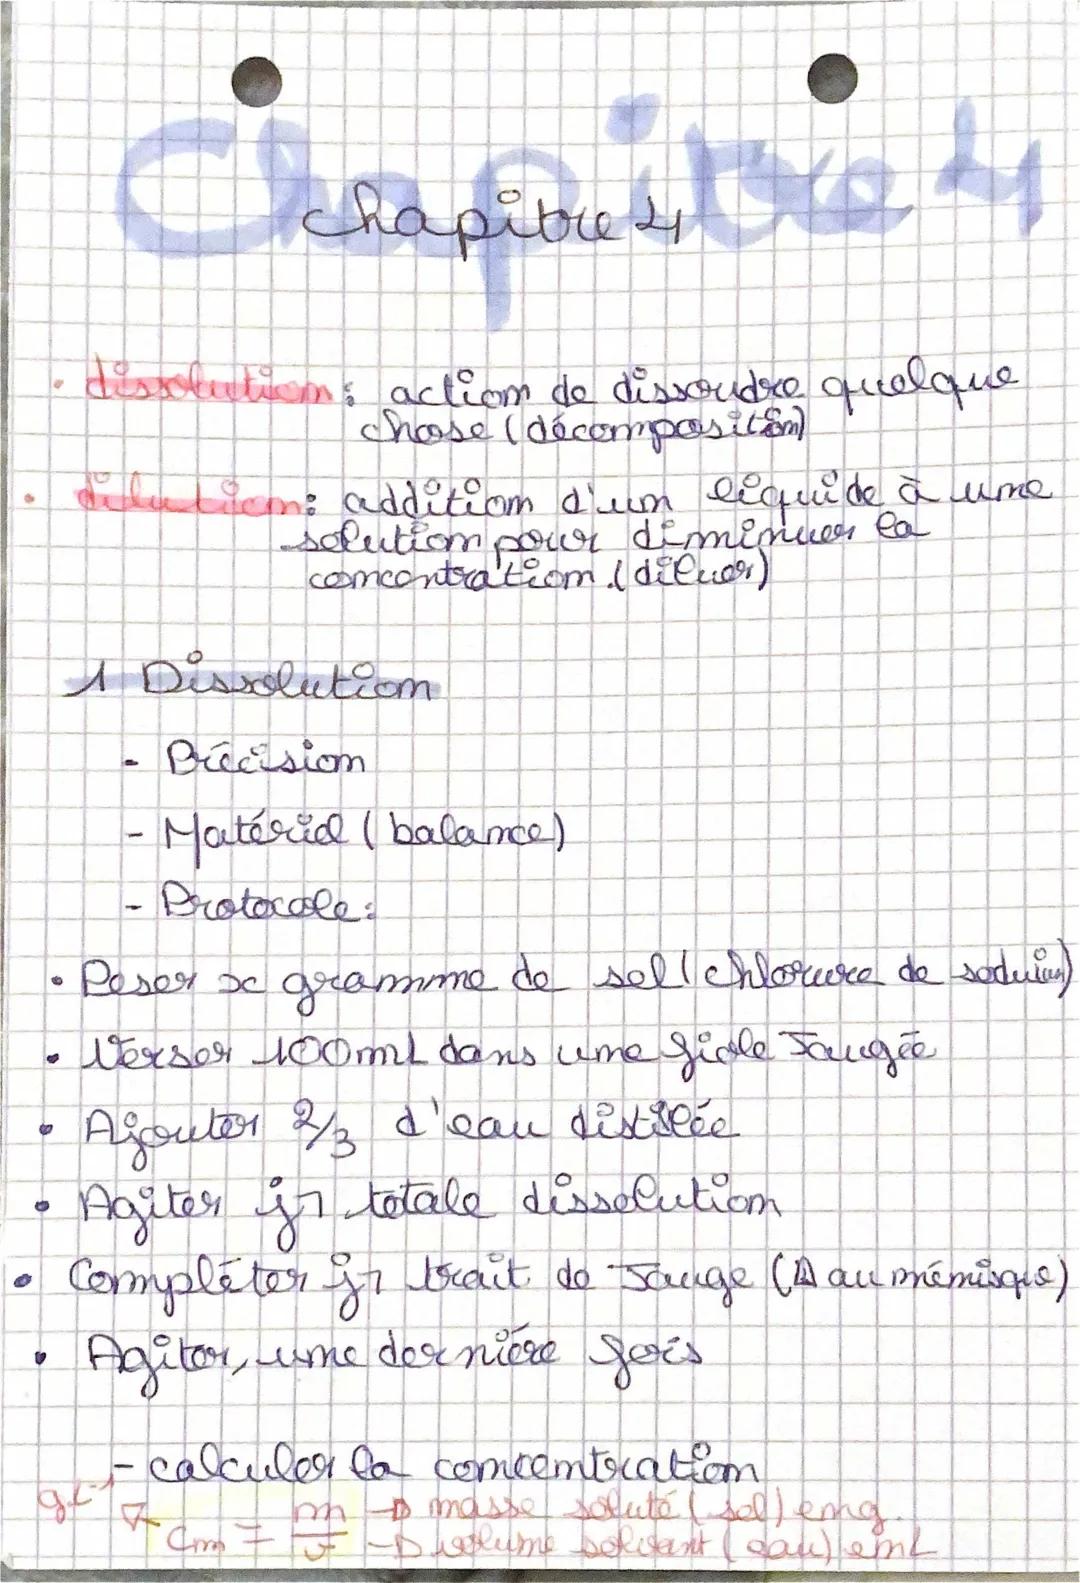 Chapitre 4
chapitre 4
• dissolution : action de dissoudre quelque
chose (décomposition)
• dilution : addition d'un liquide à une
solution pour diminuer la
concentration (diluer)
1 Dissolution
- Précision
- Matériel (balance)
- Protocole :
• Peser x gramme de sel (chlorure de sodium)
• Verser 100mL dans une fiole Jaugée
• Ajouter 2/3 d'eau distilée
• Agiter jq totale dissolution
• Compléter jq trait de Jauge (⚠ au ménisque)
• Agiter, une dernière fois
- calculer la concentration
g.L⁻¹
Cm = m/v
→ masse soluté (sel) en g.
→ volume solvant (eau) en L